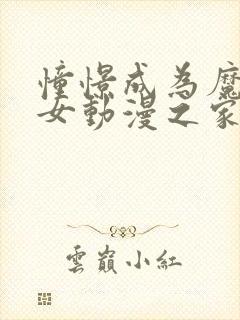 憧憬成為魔
女動漫之家
雲巔小紅